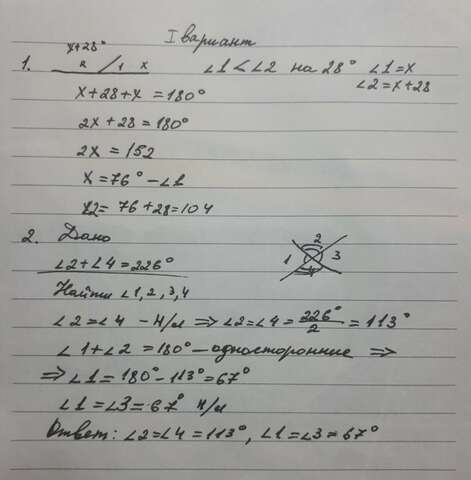 I вариант
x+28°
1. 2 / 1 x ∠1<∠2 на 28° ∠1=x
∠2=x+28
x+28+x=180°
2x+28=180°
2x=152
x=76°-∠1
∠2=76+28=104
2. Дано
∠2+∠4=226°
2
1 3
4
Найти ∠1,2,3,4
∠2=∠4 - н/л ⇒ ∠2=∠4=226°/2=113°
∠1+∠2=180°-односторонние ⇒
⇒ ∠1=180°-113°=67°
∠1=∠3=67° н/л
Ответ: ∠2=∠4=113°, ∠1=∠3=67°